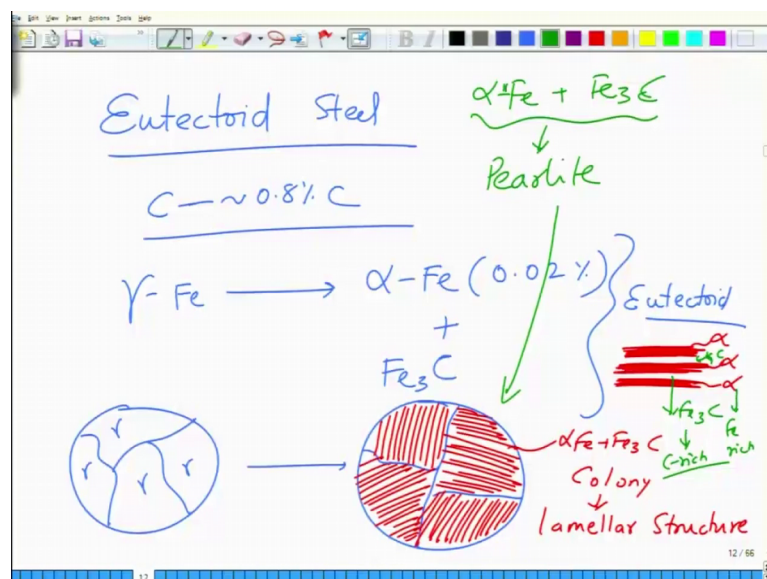 File Edit View Insert Actions Tools Help
B I
Eutectoid Steel
C — ~ 0.8% C
α-Fe + Fe3C
↓
Pearlite
γ-Fe → α-Fe (0.02%)
+
Fe3C
Eutectoid
α
α
α
Fe3C
Fe
rich
C-rich
γ
γ γ γ
αFe+Fe3C
Colony
↓
lamellar Structure
12 / 66
12